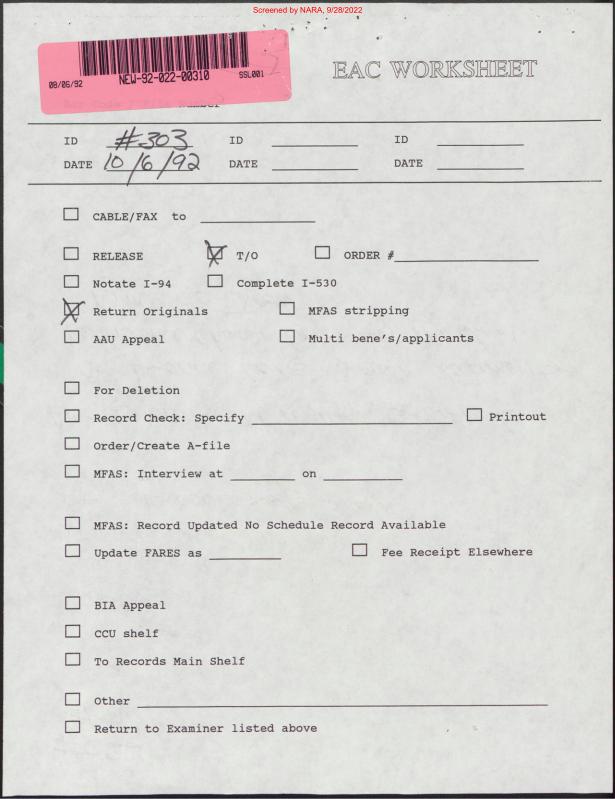 Screened by NARA, 9/28/2022
08/06/92 NEW-92-022-00310 SSL001
EAC WORKSHEET
ID #303 ID ID
DATE 10/6/92 DATE DATE
CABLE/FAX to
RELEASE T/O ORDER #
Notate I-94 Complete I-530
Return Originals MFAS stripping
AAU Appeal Multi bene's/applicants
For Deletion
Record Check: Specify Printout
Order/Create A-file
MFAS: Interview at on
MFAS: Record Updated No Schedule Record Available
Update FARES as Fee Receipt Elsewhere
BIA Appeal
CCU shelf
To Records Main Shelf
Other
Return to Examiner listed above